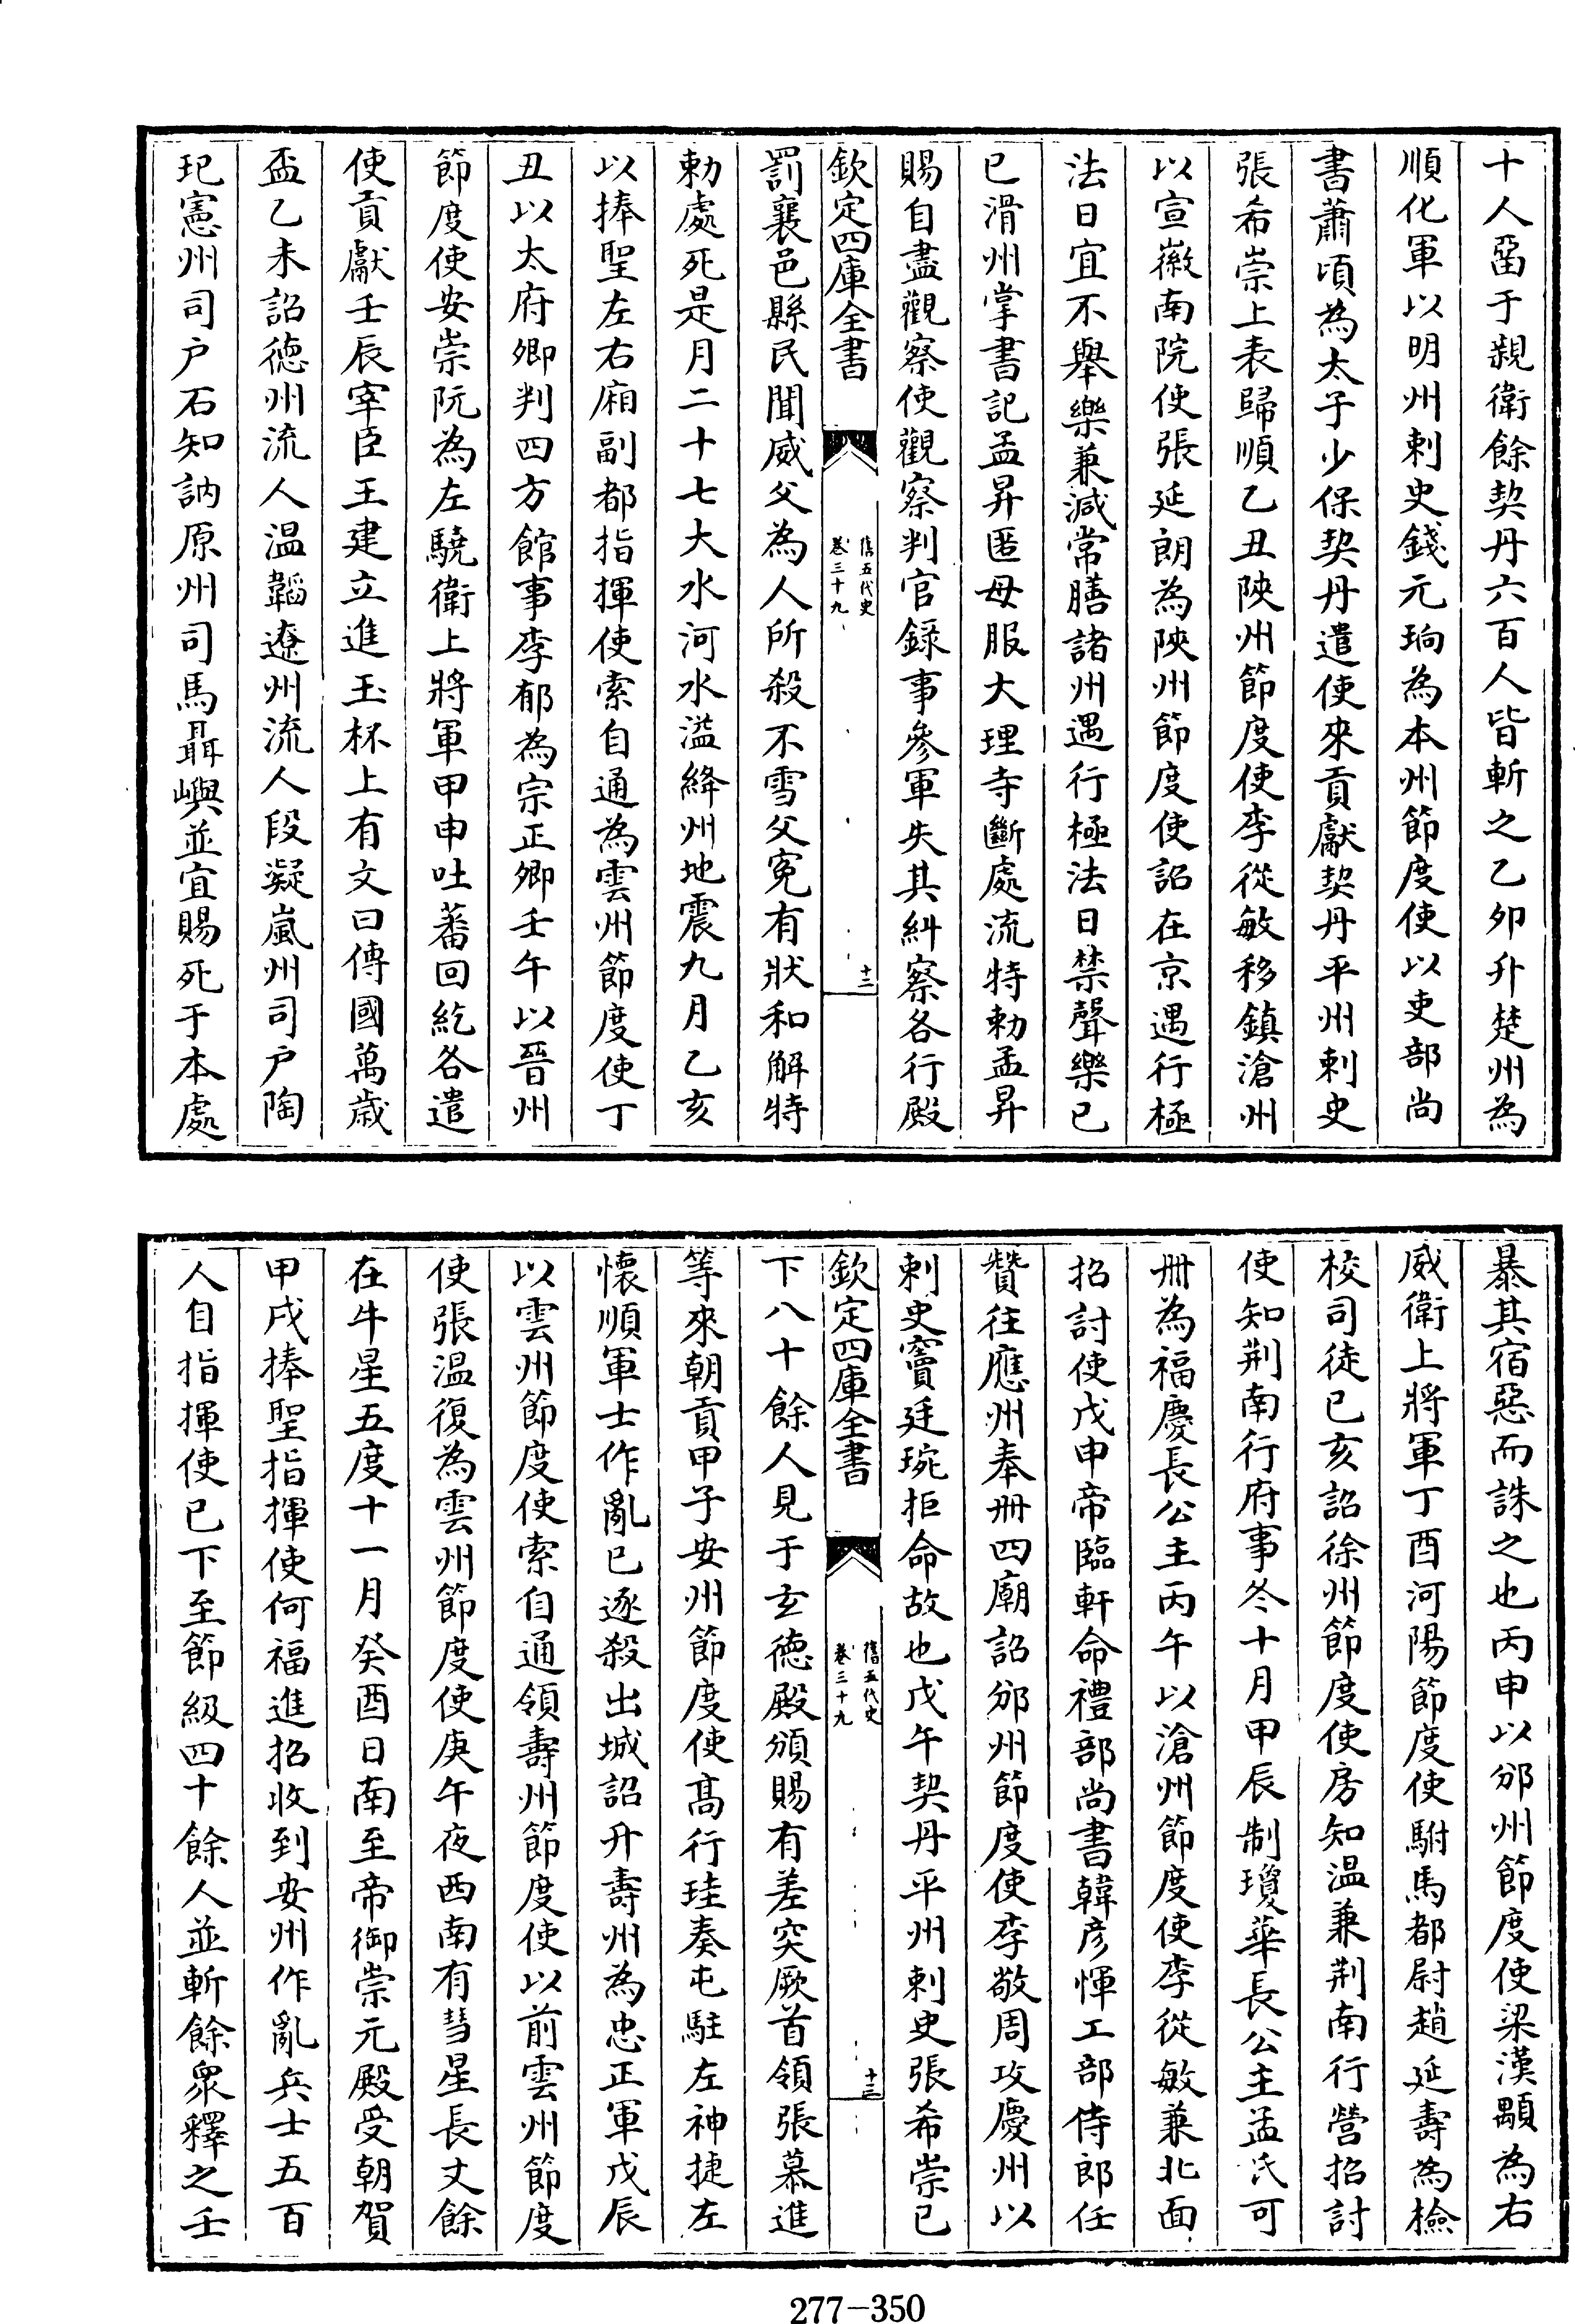 十人畱于親衛餘契丹六百人皆斬之乙夘升楚州為
順化軍以明州刺史錢元珦為本州節度使以吏部尚
書蕭頃為太子少保契丹遣使來貢獻契丹平州刺史
張希崇上表歸順乙丑陜州節度使李從敏移鎮滄州
以宣徽南院使張延朗為陜州節度使詔在京遇行極
法日宜不舉樂兼減常膳諸州遇行極法日禁聲樂已
巳滑州掌書記孟昇匿母服大理寺斷處流特勅孟昇
賜自盡觀察使觀察判官錄事參軍失其糾察各行殿
欽定四庫全書
舊五代史
卷三十九
十二
罰襄邑縣民聞威父為人所殺不雪父寃有狀和解特
勅處死是月二十七大水河水溢絳州地震九月乙亥
以捧聖左右廂副都指揮使索自通為雲州節度使丁
丑以太府卿判四方館事李郁為宗正卿壬午以晉州
節度使安崇阮為左驍衛上將軍甲申吐蕃回紇各遣
使貢獻壬辰宰臣王建立進玉杯上有文曰傳國萬歲
盃乙未詔德州流人温韜遼州流人段凝嵐州司户陶
玘憲州司户石知訥原州司馬聶嶼並宜賜死于本處
暴其宿惡而誅之也丙申以邠州節度使梁漢顒為右
威衛上將軍丁酉河陽節度使駙馬都尉趙延壽為檢
校司徒已亥詔徐州節度使房知温兼荆南行營招討
使知荆南行府事冬十月甲辰制瓊華長公主孟氏可
冊為福慶長公主丙午以滄州節度使李從敏兼北面
招討使戊申帝臨軒命禮部尚書韓彦惲工部侍郎任
贊往應州奉冊四廟詔邠州節度使李敬周攻慶州以
刺史竇廷琬拒命故也戊午契丹平州刺史張希崇已
欽定四庫全書
舊五代史
卷三十九
十三
下八十餘人見于玄德殿頒賜有差突厥首領張慕進
等來朝貢甲子安州節度使髙行珪奏屯駐左神捷左
懐順軍士作亂已逐殺出城詔升壽州為忠正軍戊辰
以雲州節度使索自通領壽州節度使以前雲州節度
使張温復為雲州節度使庚午夜西南有彗星長丈餘
在牛星五度十一月癸酉日南至帝御崇元殿受朝賀
甲戌捧聖指揮使何福進招收到安州作亂兵士五百
人自指揮使已下至節級四十餘人並斬餘衆釋之壬
277-350